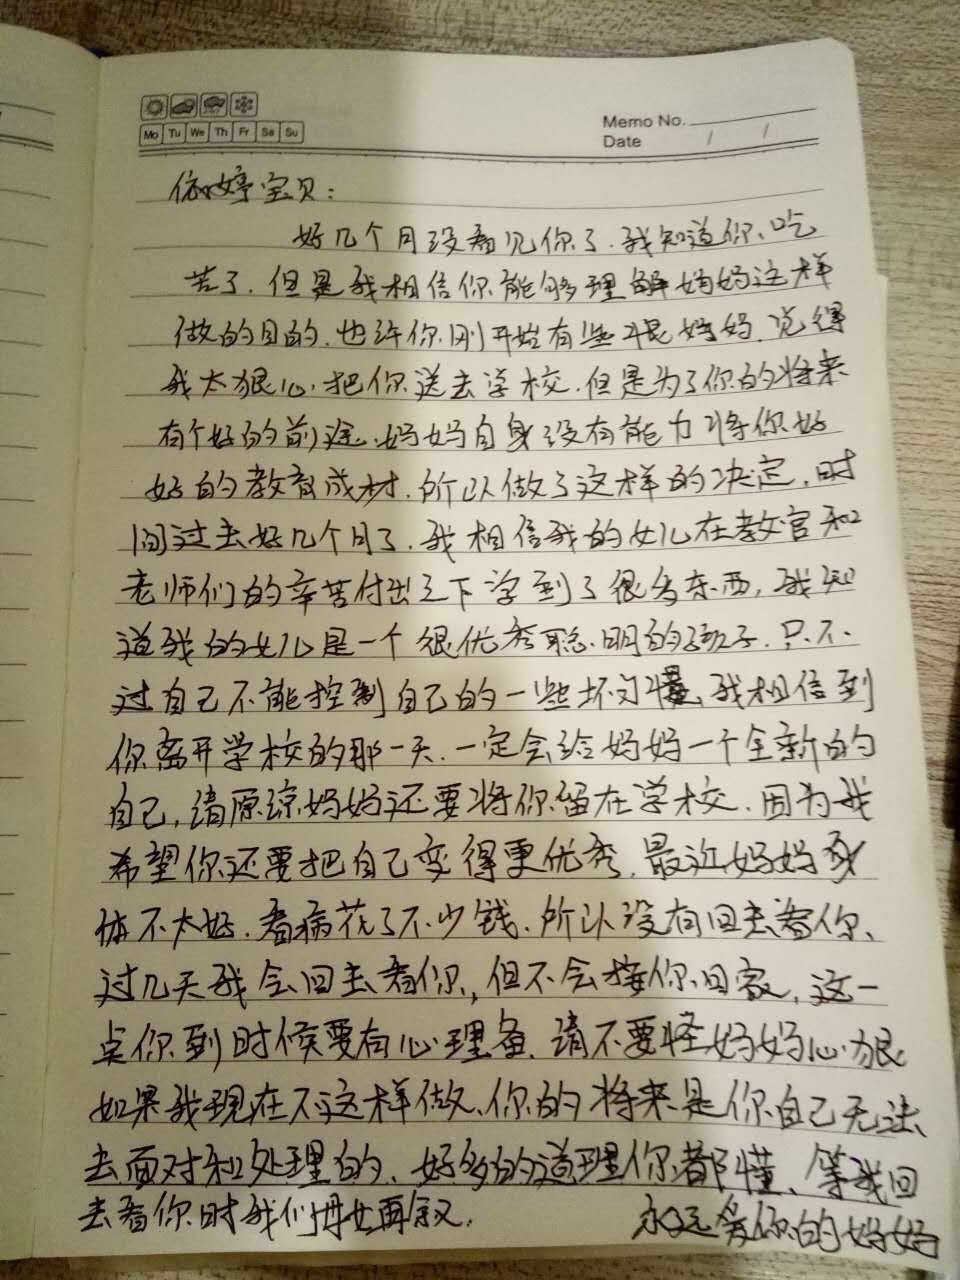 Mo Tu We Th Fr Sa Su
Memo No.
Date / /
依婷宝贝：
好几个月没看见你了.我知道你、吃
苦了.但是我相信你能够理解妈妈这样
做的目的.也许你刚开始有些恨妈妈.说得
我太狠心.把你送去学校.但是为了你的将来
有个好的前途.妈妈自身没有能力将你好
好的教育成材.所以做了这样的决定.时
间过去好几个月了.我相信我的女儿在教官和
老师们的辛苦付出之下学到了很多东西，我知
道我的女儿是一个很优秀聪明的孩子.只不
过自己不能控制自己的一些坏习惯.我相信到
你离开学校的那一天.一定会给妈妈一个全新的
自己，请原谅妈妈还要将你留在学校.因为我
希望你还要把自己变得更优秀.最近妈妈身
体不太好.看病花了不少钱.所以没有回去看你、
过几天我会回去看你，但不会接你回家，这一
点你到时候要有心理备.请不要怪妈妈心狠
如果我现在不这样做、你的将来是你自己无法
去面对和处理的、好多的道理你都懂、等我回
去看你时我们母女再叙.
永远爱你的妈妈